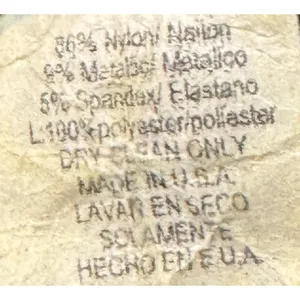 86% Nylon/ Nailon
8% Metallic/ Metalico
6% Spandex/ Elastano
L:100% polyester/poliester
DRY CLEAN ONLY
MADE IN U.S.A.
LAVAR EN SECO
SOLAMENTE
HECHO ED E.U.A.